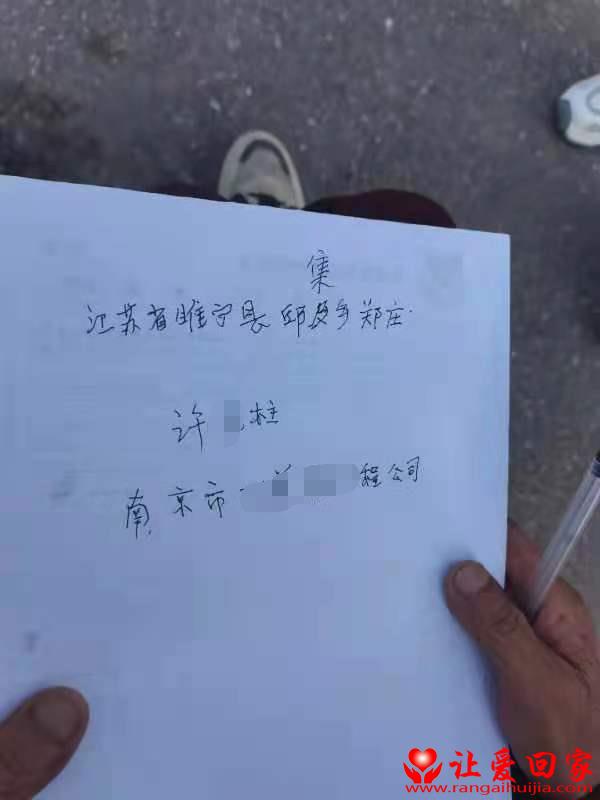 集
江苏省睢宁县邱及乡郑庄.
许 柱
南京市 程公司
让爱回家
www.rangaihuijia.com